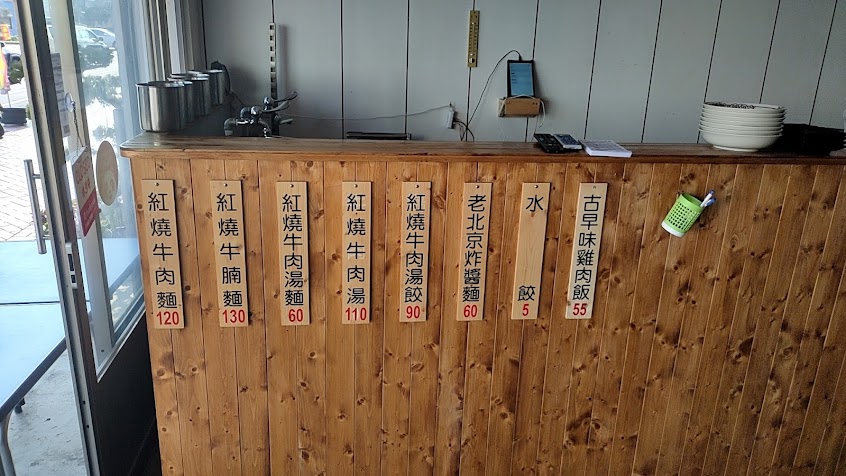 紅燒牛肉麵
120
紅燒牛腩麵
130
紅燒牛肉湯麵
60
紅燒牛肉湯
110
紅燒牛肉湯餃
90
老北京炸醬麵
60
水餃
5
古早味雞肉飯
55